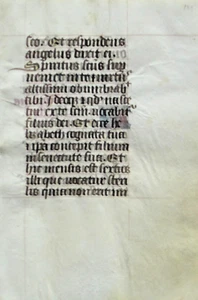 sco. Et respondens
angelus dixit ei.
Spiritus scūs sup
veniet in te et virtus
altissimi obumbrab
tibi. Ideoq; et qd nasce
tur ex te scm vocabit
filius dei. Et ecce he
lisabeth cognata tua
et ipa concepit filium
in senectute sua. Et
hic mensis est sextus
illi que vocatur steri
lis quia non erit im